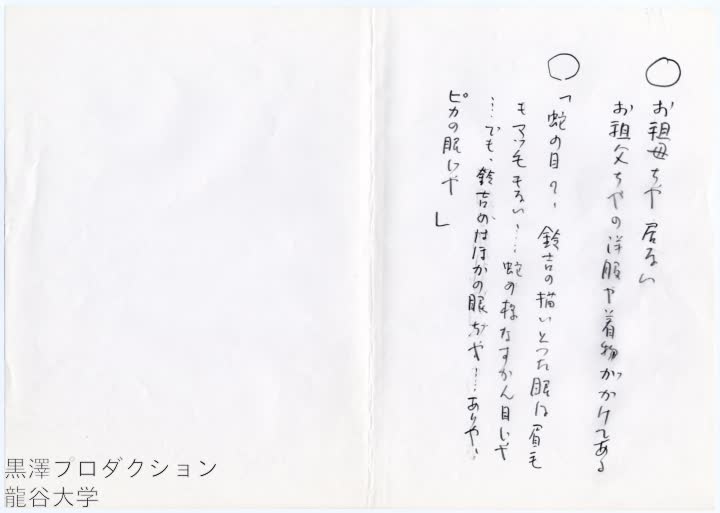 ○ お祖母ちゃ 居ない
お祖父ちゃの洋服や着物がかけてある
○ 「蛇の目の、鈴吉の描いとった眼は眉毛
もマツ毛もない……蛇の様なすかん目じゃ
…でも、鈴吉めはほかの眼ぢゃ……ありゃ、
ピカの眼じゃ」
黒澤プロダクション
龍谷大学